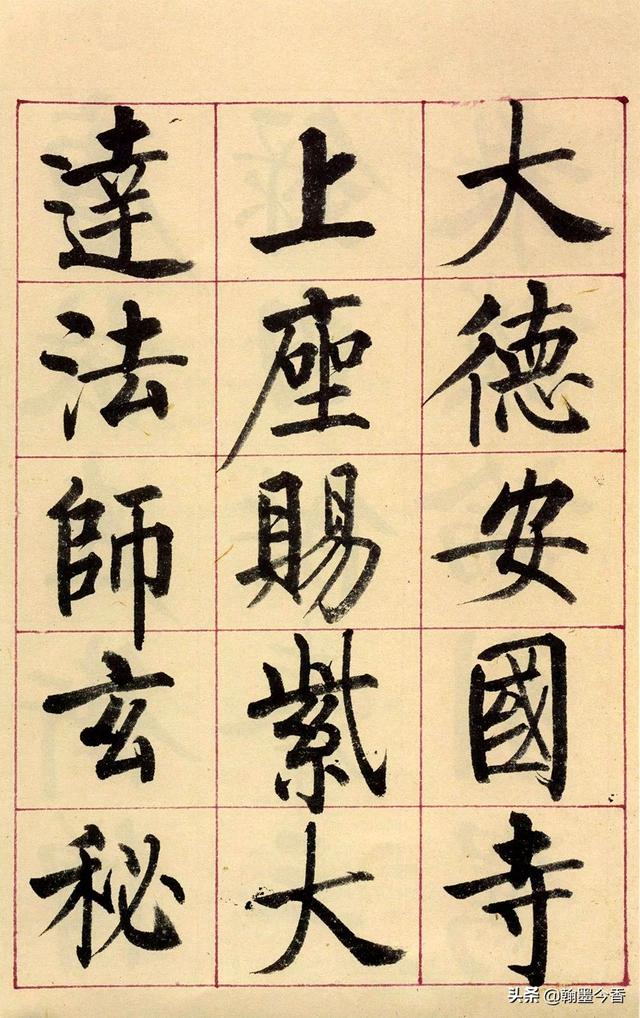 大德安國寺
上座賜紫大
達法師玄秘
头条 @翰墨今香